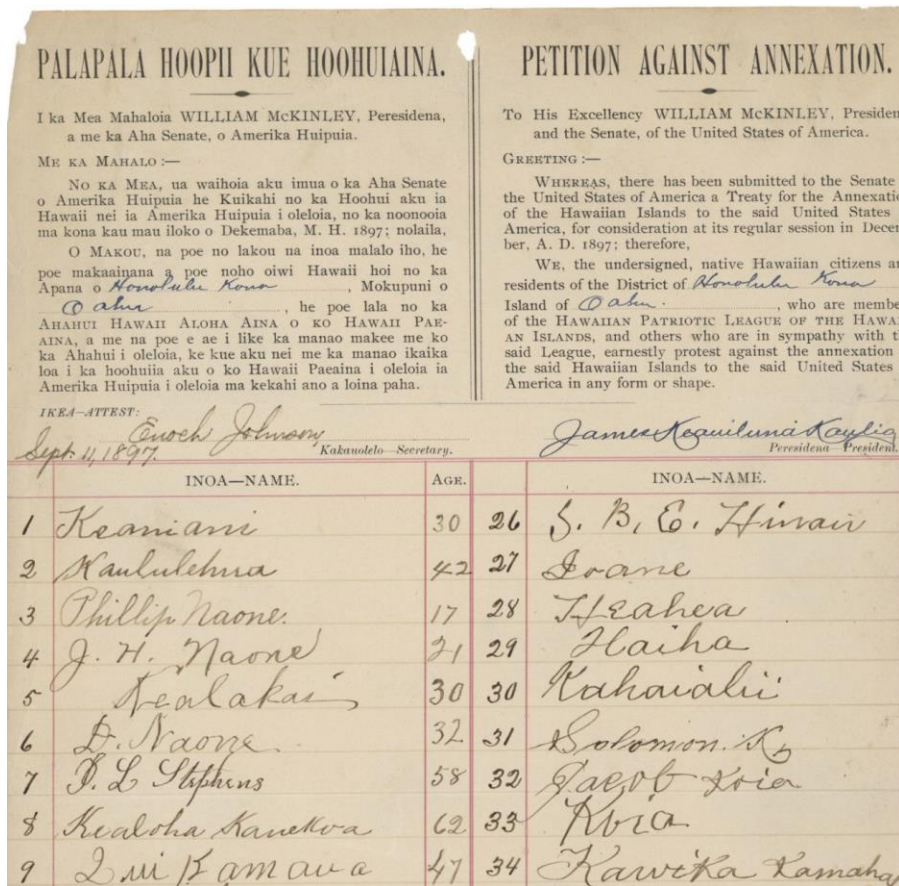 PALAPALA HOOPII KUE HOOHUIAINA.
I ka Mea Mahaloia WILLIAM McKINLEY, Peresidena,
a me ka Aha Senate, o Amerika Huipuia.
ME KA MAHALO:—
NO KA MEA, ua waihoia aku imua o ka Aha Senate
o Amerika Huipuia he Kuikahi no ka Hoohui aku ia
Hawaii nei ia Amerika Huipuia i oleloia, no ka noonooia
ma kona kau mau iloko o Dekemaba, M. H. 1897; nolaila,
O MAKOU, na poe no lakou na inoa malalo iho, he
poe makaainana a poe noho oiwi Hawaii hoi no ka
Apana o Honolulu Kona, Mokupuni o
Oahu, he poe lala no ka
AHAHUI HAWAII ALOHA AINA O KO HAWAII PAE-
AINA, a me na poe e ae i like ka manao makee me ko
ka Ahahui i oleloia, ke kue aku nei me ka manao ikaika
loa i ka hoohuiia aku o ko Hawaii Paeaina i oleloia ia
Amerika Huipuia i oleloia ma kekahi ano a loina paha.
PETITION AGAINST ANNEXATION.
To His Excellency WILLIAM McKINLEY, Presiden
and the Senate, of the United States of America.
GREETING:—
WHEREAS, there has been submitted to the Senate
the United States of America a Treaty for the Annexatio
of the Hawaiian Islands to the said United States
America, for consideration at its regular session in Decem
ber, A. D. 1897; therefore,
WE, the undersigned, native Hawaiian citizens an
residents of the District of Honolulu Kona
Island of Oahu., who are membe
of the HAWAIIAN PATRIOTIC LEAGUE OF THE HAWAI
AN ISLANDS, and others who are in sympathy with th
said League, earnestly protest against the annexation
the said Hawaiian Islands to the said United States
America in any form or shape.
IKEA—ATTEST:
Enoch Johnson
Sept. 11, 1897.
Kakauolelo—Secretary.
James Keauiluna Kaulia
Peresidena—President.
INOA—NAME. AGE. INOA—NAME.
1 Keaniani 30 26 S. B. E.
2 Kaululehua 42 27 Ioane
3 Phillip Naone. 17 28 Heahea
4 J. H. Naone 21 29 Haiha
5 Kealakai 30 30 Kahaialii
6 D. Naone 32 31 Solomon. K
7 D. L Stephens 58 32 Jacob Koia
8 Kealoha 62 33 Koia
9 Kamaua 47 34 Kawika Kamaha